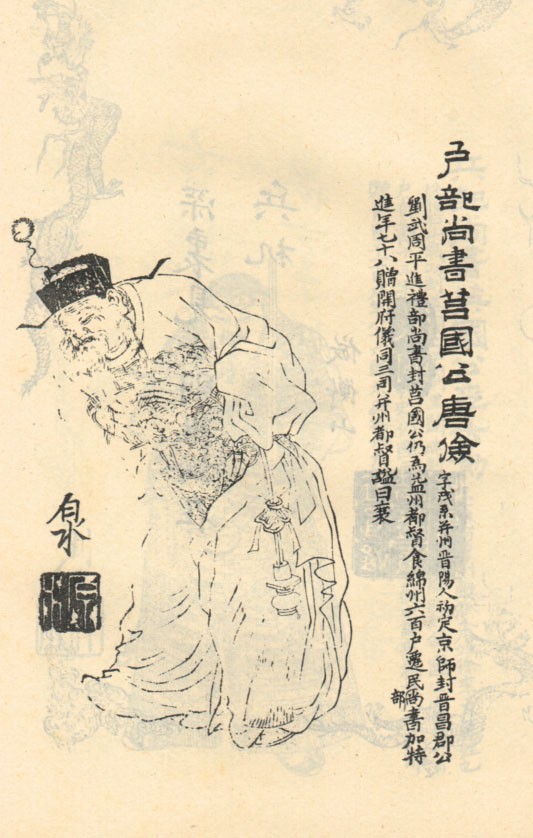 户部尚書莒國公唐儉
字茂系并州晉陽人初定京師封晉昌郡公
劉武周平進禮部尚書封莒國公仍為益州都督食綿州六百户遷民部尚書加特
進年七十八贈開府儀同三司并州都督謚曰襄
白水